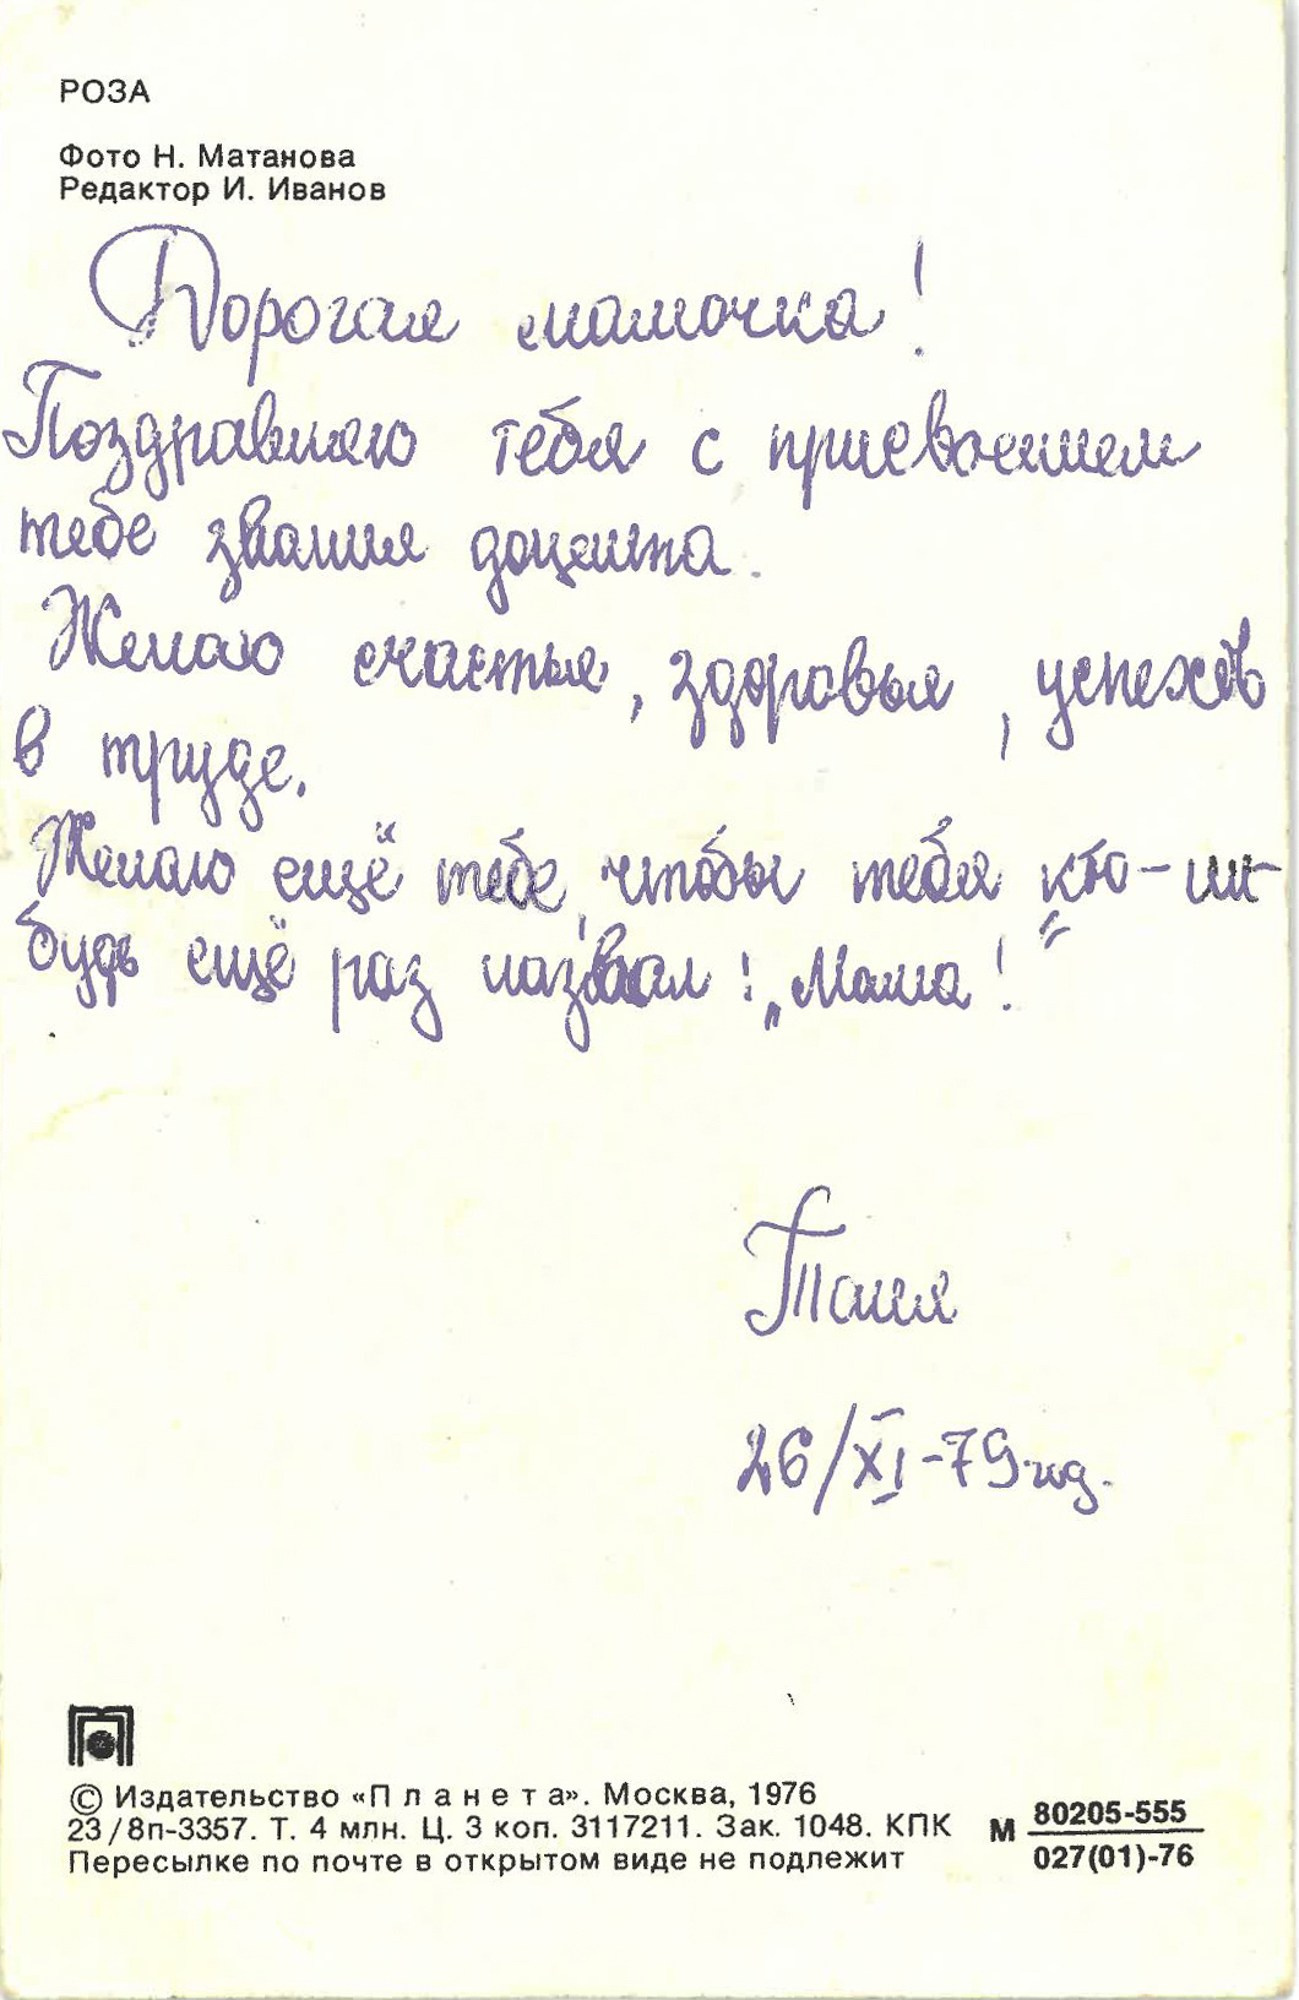 РОЗА
Фото Н. Матанова
Редактор И. Иванов
Дорогая мамочка!
Поздравляю тебя с присвоением
тебе звания доцента.
Желаю счастья, здоровья, успехов
в труде.
Желаю ещё тебе, чтобы тебя кто-ни-
будь ещё раз назвал: „Мама!"
Таня
26/XI-79 год.
© Издательство «Планета». Москва, 1976
23/8п-3357. Т. 4 млн. Ц. 3 коп. 3117211. Зак. 1048. КПК
Пересылке по почте в открытом виде не подлежит
М 80205-555
027(01)-76